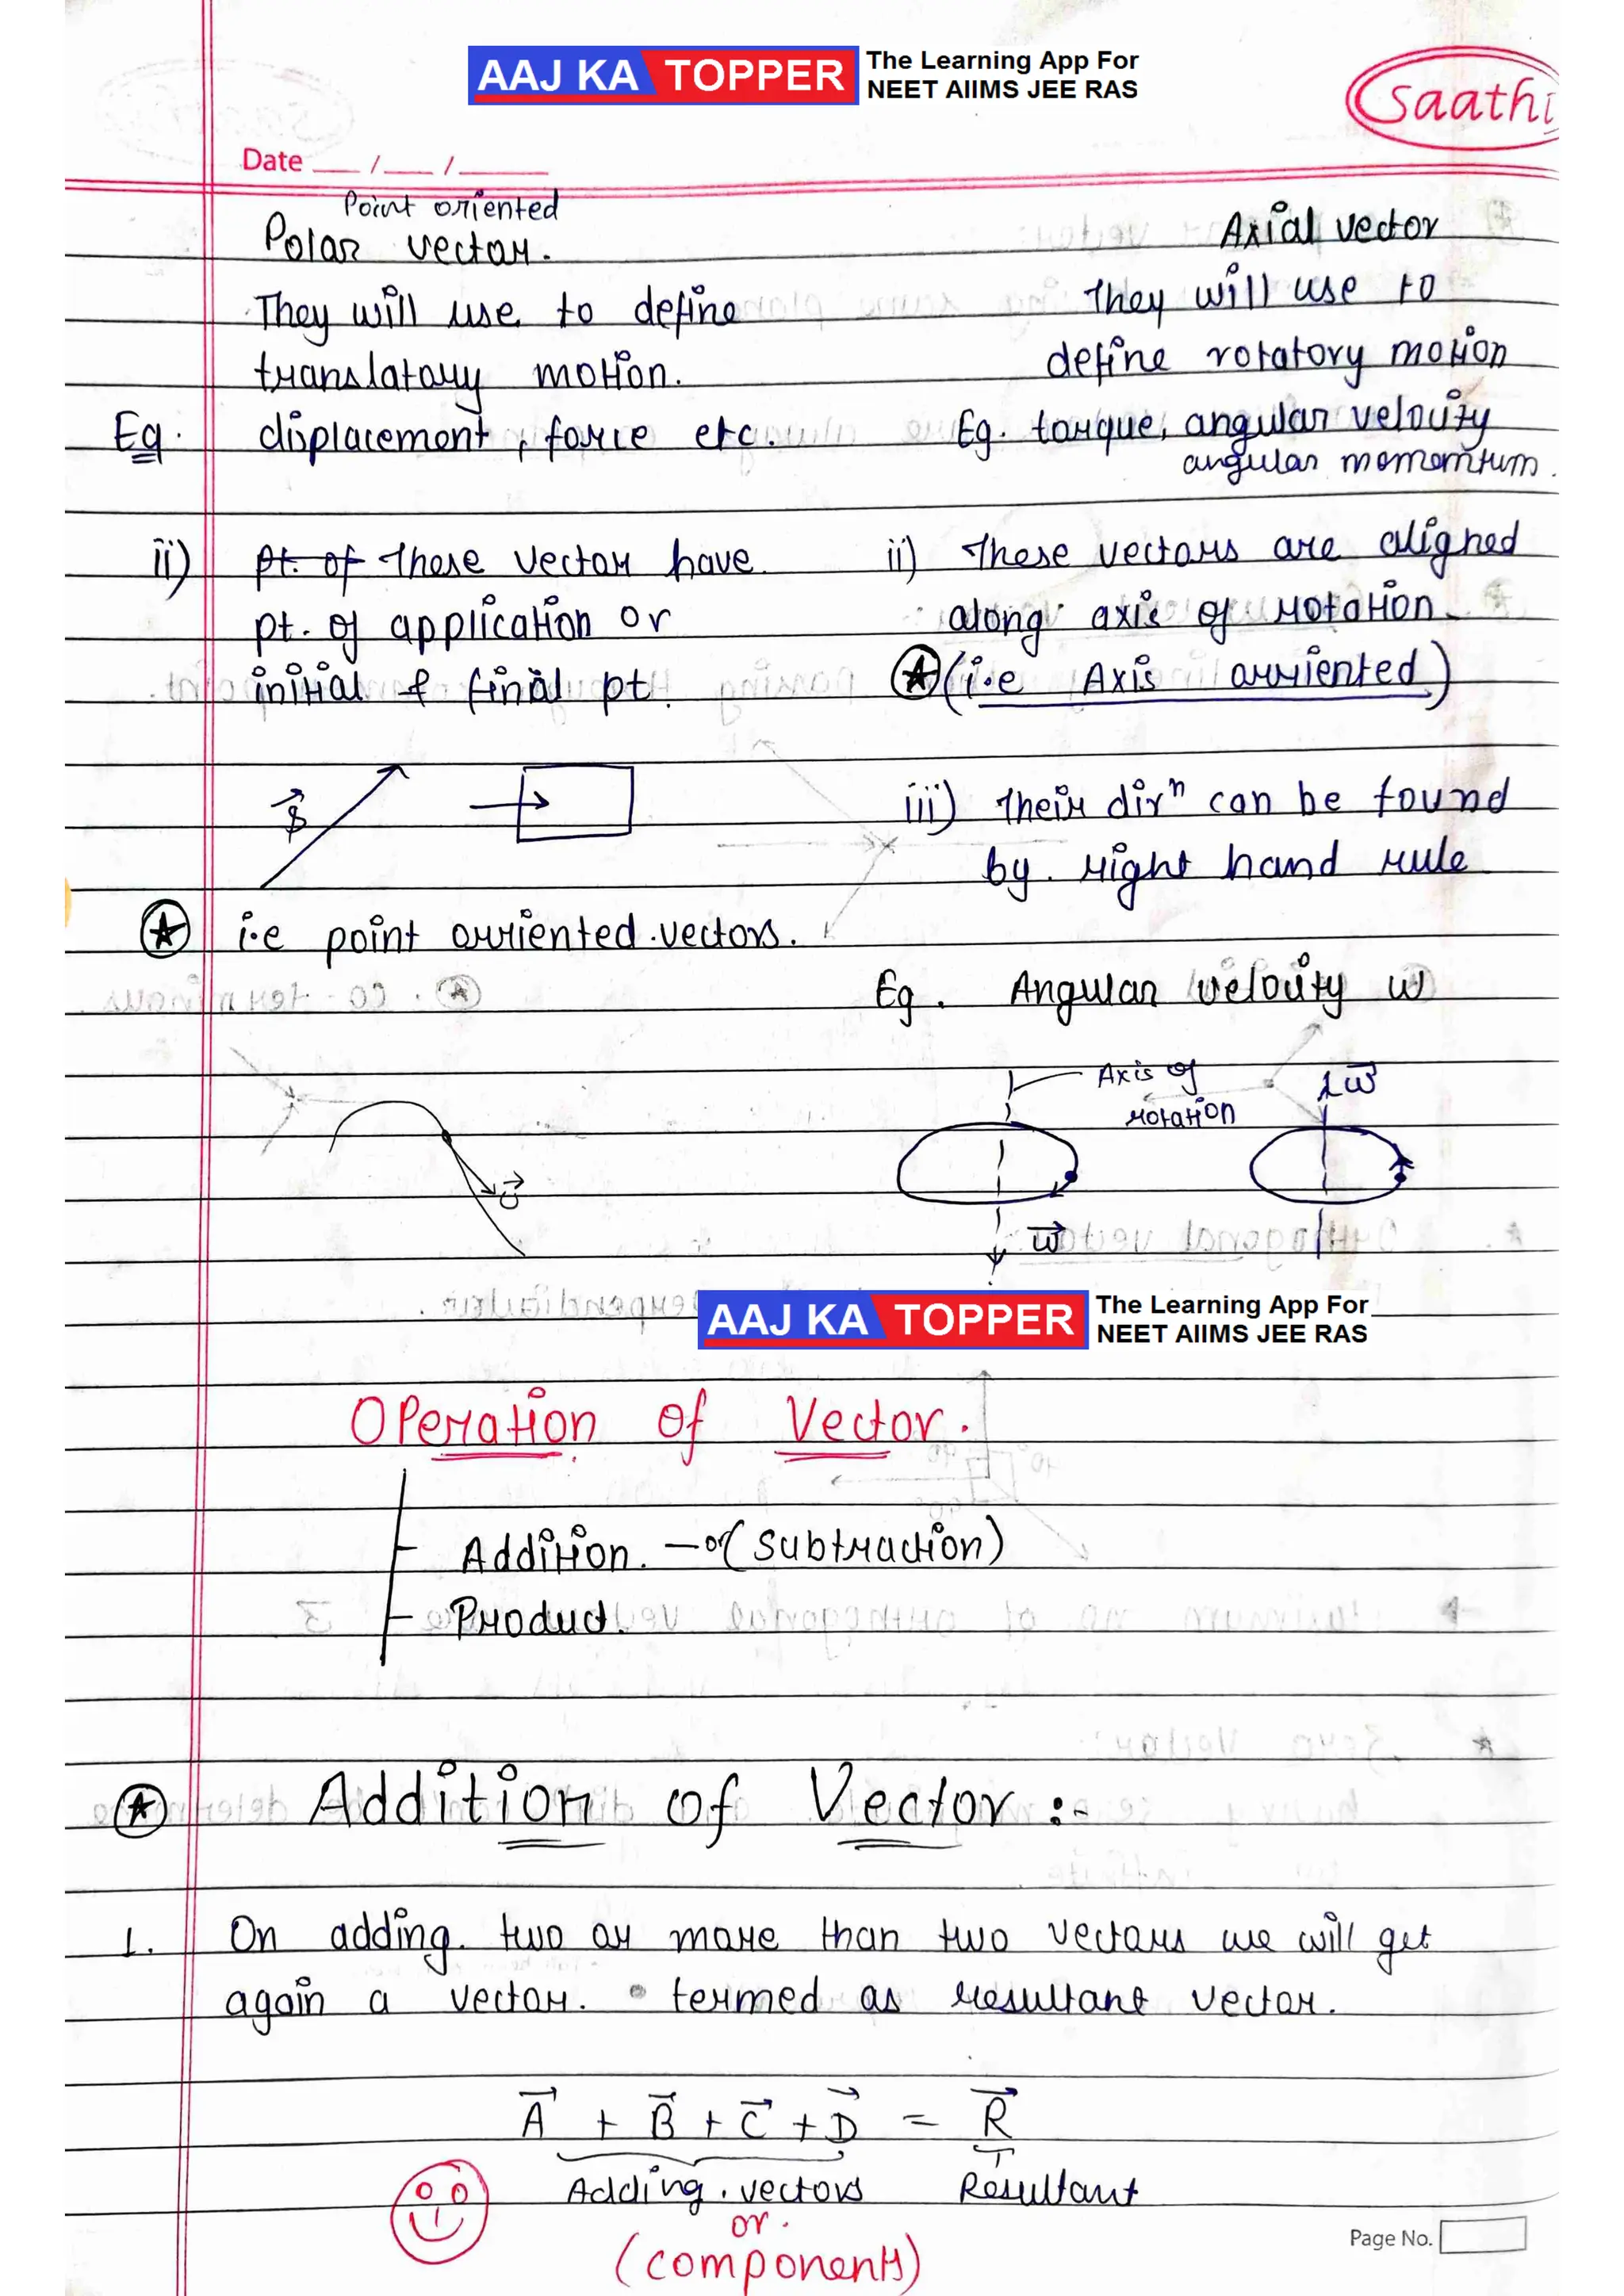 AAJ KA TOPPER The Learning App For
NEET AIIMS JEE RAS
Saathi
Date __/__/____
Point oriented
Polar vector.
They will use to define
translatory motion.
Eg. displacement, force etc.
ii) pt. of These vector have
pt. of application or
initial & final pt.
i.e point orriented vectors.
Axial vector
They will use to
define rotatory motion
Eg. torque, angular velocity
angular momemtum.
ii) These vectors are aligned
along axis of rotation
(i.e Axis orriented)
iii) Their dirⁿ can be found
by. right hand rule
Eg. Angular velocity w
Axis of
rotation
w⃗
w⃗
AAJ KA TOPPER The Learning App For
NEET AIIMS JEE RAS
Operation of Vector.
Addition. — or (subtraction)
Product.
Addition of Vector :-
1. On adding. two or more than two vectors we will get
again a vector. termed as resultant vector.
A⃗ + B⃗ + C⃗ + D⃗ = R⃗
Adding. vectors Resultant
or.
(components)
Page No.